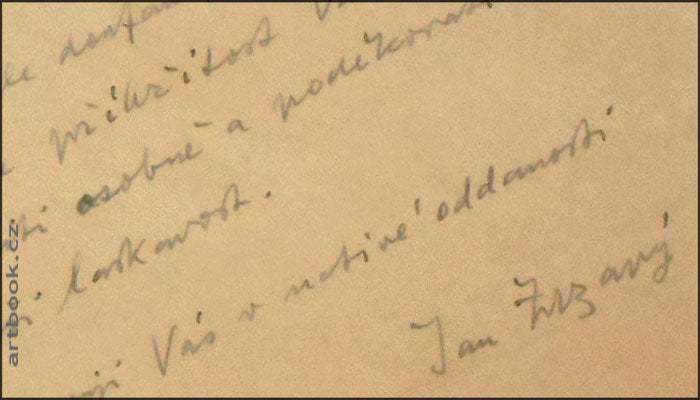 doufám
příležitost
osobně a poděkovat
laskavost.
Vás v uctivé oddanosti
Jan Zrzavý
artbook.cz